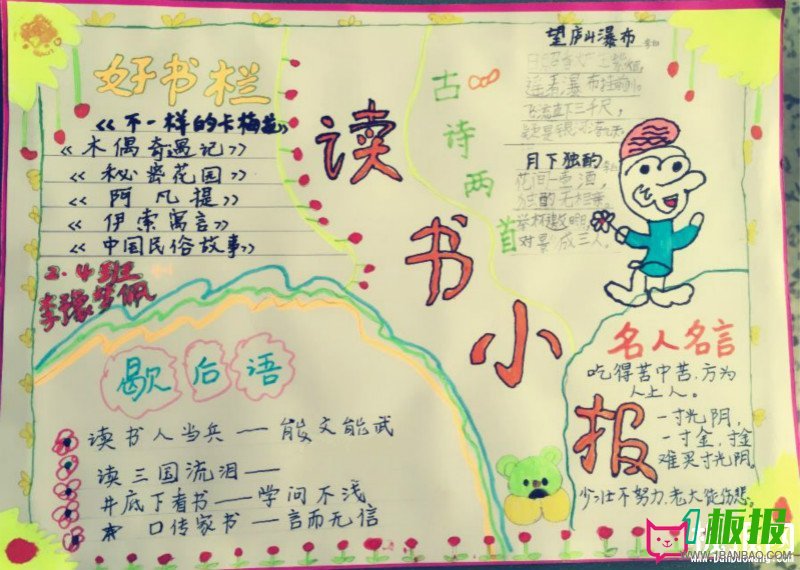 好书栏
《不一样的卡梅拉》
《木偶奇遇记》
《秘密花园》
《阿凡提》
《伊索寓言》
《中国民俗故事》
2.4班
读书小报
古诗两首
望庐山瀑布 李白
飞流直下三千尺,
月下独酌 李白
花间一壶酒,
独酌无相亲。
举杯邀明月,
对影成三人。
名人名言
吃得苦中苦,方为
人上人。
一寸光阴,
一寸金,寸金
难买寸光阴。
少壮不努力,老大徒伤悲。
歇后语
读书人当兵——能文能武
读三国流泪——
井底下看书——学问不浅
口传家书——言而无信
1板报
WWW.1BANBAO.COM